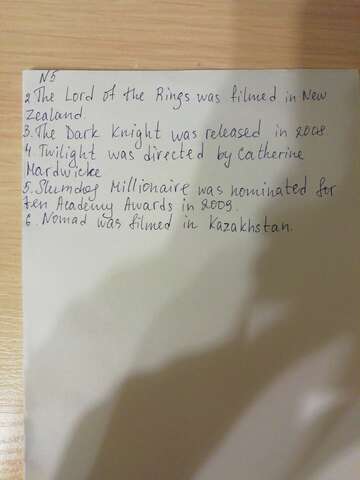 N5
2 The Lord of the Rings was filmed in New
Zealand.
3. The Dark Knight was released in 2008
4. Twilight was directed by Catherine
Hardwicke
5. Slumdog Millionaire was nominated for
ten Academy Awards in 2009.
6. Nomad was filmed in Kazakhstan.